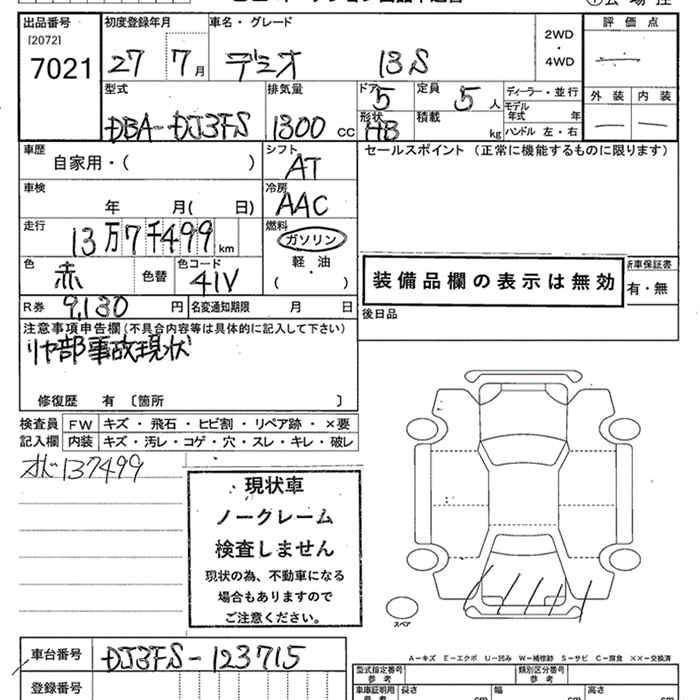 出品番号 初度登録年月 車名・グレード 評価点
[2072]
7021 27 7月 デミオ 13S 2WD・4WD
外装 内装
型式 排気量 ドア 5 定員 5人 ディーラー・並行
DBA-DJ3FS 1300 cc 形状 HB 積載 kg モデル年式 年
ハンドル 左・右
車歴 シフト セールスポイント(正常に機能するものに限ります)
自家用・( ) AT
車検 冷房
年 月( 日) AAC
走行 燃料
13万7千499km ガソリン
軽・油
( )
色 色コード
赤 色替 41V
装備品欄の表示は無効
新車保証書
有・無
R券 9,130円 名変通知期限 月 日
後日品
注意事項申告欄(不具合内容等は具体的に記入して下さい)
リヤ部事故現状
修復歴 有 〔箇所 〕
検査員 FW キズ・飛石・ヒビ割・リペア跡・×要
記入欄 内装 キズ・汚レ・コゲ・穴・スレ・キレ・破レ
137499
現状車
ノークレーム
検査しません
現状の為、不動車になる
場合もありますので
ご注意ください。
スペア
A-キズ E-エクボ U-凹み W-補修跡 S-サビ C-腐食 ××-交換済
車台番号 DJ3FS-123715
型式指定番号 参考 類別区分番号 参考
登録番号
車庫証明用 参考 長さ cm 幅 cm 高さ cm